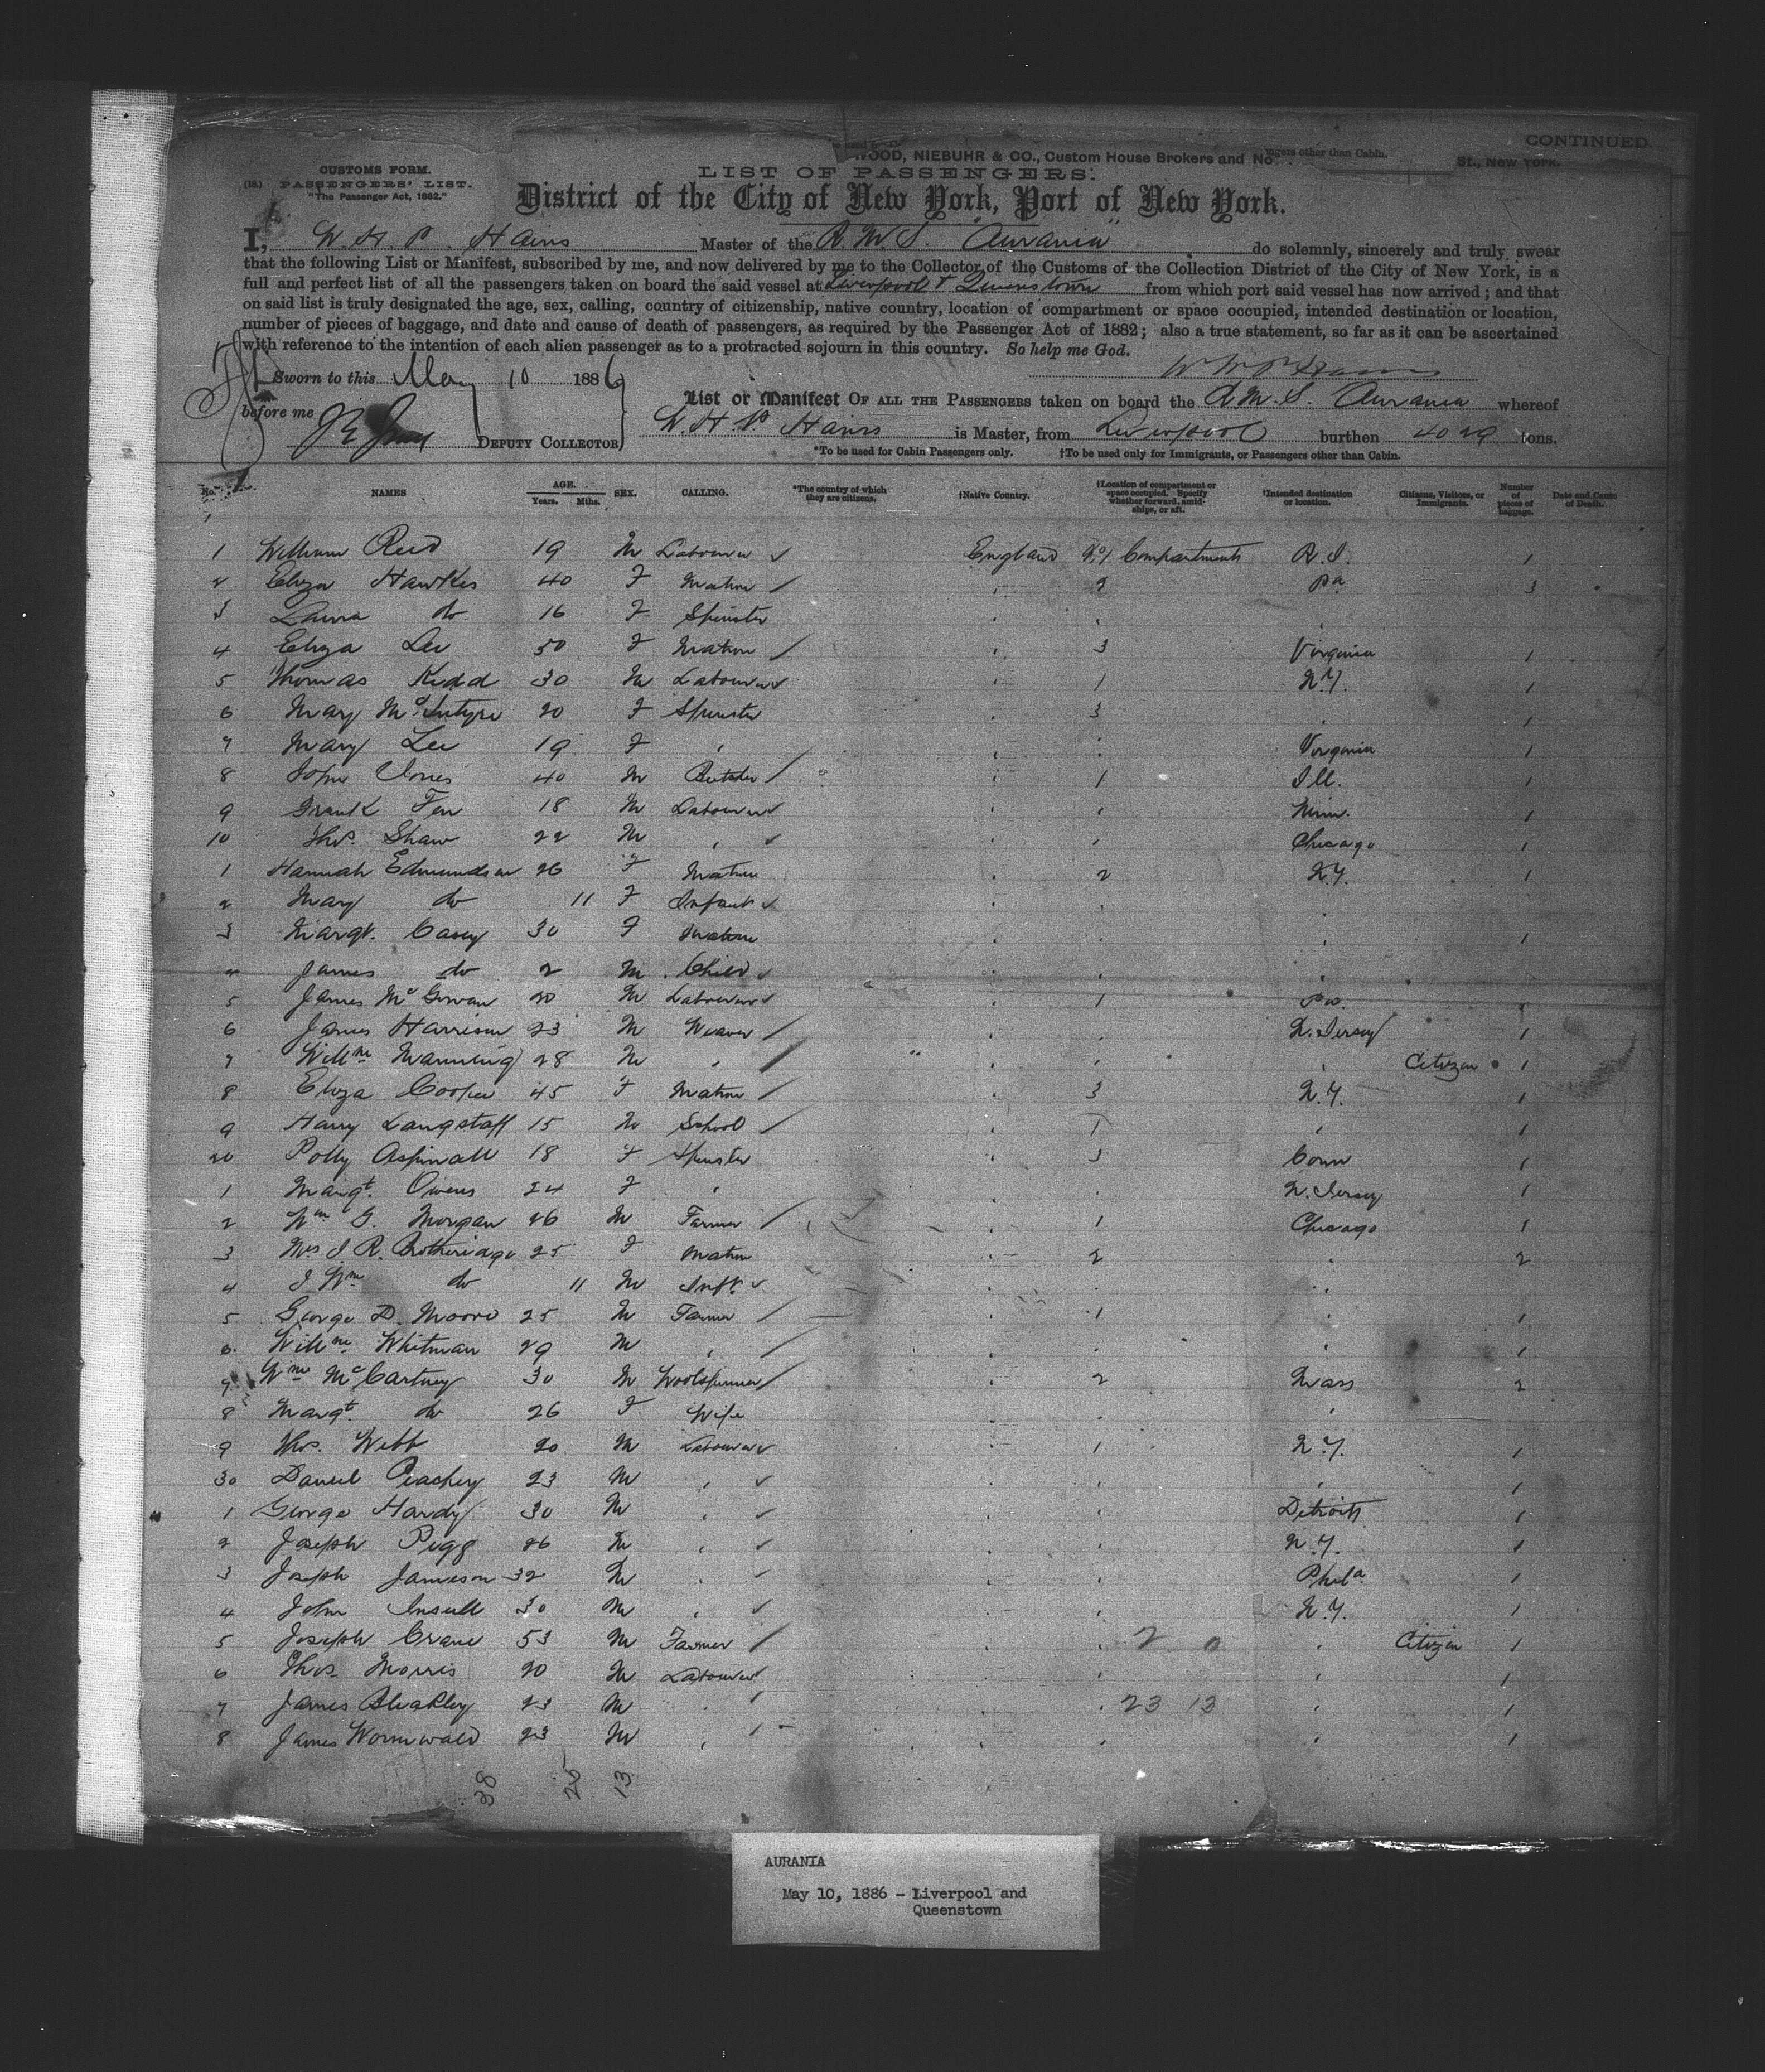 CONTINUED.
WOOD, NIEBUHR & CO., Custom House Brokers and No
ngers other than Cabin.
St., New York.
CUSTOMS FORM.
(18.) PASSENGERS' LIST.
"The Passenger Act, 1882."
LIST OF PASSENGERS.
District of the City of New York, Port of New York.
I, W. H. P. Hains Master of the R.M.S. "Aurania" do solemnly, sincerely and truly swear
that the following List or Manifest, subscribed by me, and now delivered by me to the Collector of the Customs of the Collection District of the City of New York, is a
full and perfect list of all the passengers taken on board the said vessel at Liverpool & Queenstown from which port said vessel has now arrived; and that
on said list is truly designated the age, sex, calling, country of citizenship, native country, location of compartment or space occupied, intended destination or location,
number of pieces of baggage, and date and cause of death of passengers, as required by the Passenger Act of 1882; also a true statement, so far as it can be ascertained
with reference to the intention of each alien passenger as to a protracted sojourn in this country. So help me God.
Sworn to this May 10 1886
W H P Hains
before me
DEPUTY COLLECTOR
List or Manifest OF ALL THE PASSENGERS taken on board the R.M.S. Aurania whereof
W. H. P. Hains is Master, from Liverpool burthen 4029 tons.
*To be used for Cabin Passengers only. †To be used only for Immigrants, or Passengers other than Cabin.
No. NAMES AGE. Years. Mths. SEX. CALLING. *The country of which they are citizens. †Native Country. †Location of compartment or space occupied. Specify whether forward, amidships, or aft. †Intended destination or location. Citizens, Visitors, or Immigrants. Number of pieces of baggage. Date and Cause of Death.
1 William Reid 19 M Labourer England No 1 Compartment R.I. 1
2 Eliza Hawkes 40 F Matron 2 Pa 3
3 Laura do 16 F Spinster
4 Eliza Lee 50 F Matron 3 Virginia 1
5 Thomas Kidd 30 M Labourer 1 N.Y. 1
6 Mary McIntyre 20 F Spinster 3 1
7 Mary Lee 19 F Virginia 1
8 John Jones 40 M Butcher 1 Ill. 1
9 Frank Fen 18 M Labourer Minn. 1
10 Thos. Shaw 22 M Chicago 1
1 Hannah Edmundson 26 F Matron 2 N.Y. 1
2 Mary do 11 F Infant
3 Margt. Casey 30 F Matron 1
4 James do 2 M Child
5 James McGowan 20 M Labourer 1 Pa.
6 James Harrison 23 M Weaver N. Jersey 1
7 Willm Manning 28 M Citizen 1
8 Eliza Cooper 45 F Matron 3 N.Y. 1
9 Harry Langstaff 15 M School 1 1
20 Polly Aspinall 18 F Spinster 3 Conn 1
1 Margt. Owens 24 F N. Jersey 1
2 Wm G. Morgan 26 M Farmer 1 Chicago 1
3 Mrs J R. Brotheridge 25 F Matron 2 2
4 J Wm do 11 M Inft.
5 George D. Moore 25 M Farmer 1 1
6 Willm Whitman 29 M 1
7 Wm McCartney 30 M Woolspinner 2 Mass 2
8 Margt. do 26 F Wife
9 Thos. Webb 20 M Labourer 1 N.Y. 1
30 Daniel Peachey 23 M 1
1 George Hardy 30 M Detroit 1
2 Joseph Pigg 26 M N.Y. 1
3 Joseph Jameson 32 M Phila 1
4 John Insull 30 M N.Y. 1
5 Joseph Crane 53 M Farmer 2 0 Citizen 1
6 Thos. Morris 20 M Labourer 1
7 James Bleakley 23 M 23 13 1
8 James Wormwald 23 M 1
38 25 13
AURANIA
May 10, 1886 - Liverpool and
Queenstown